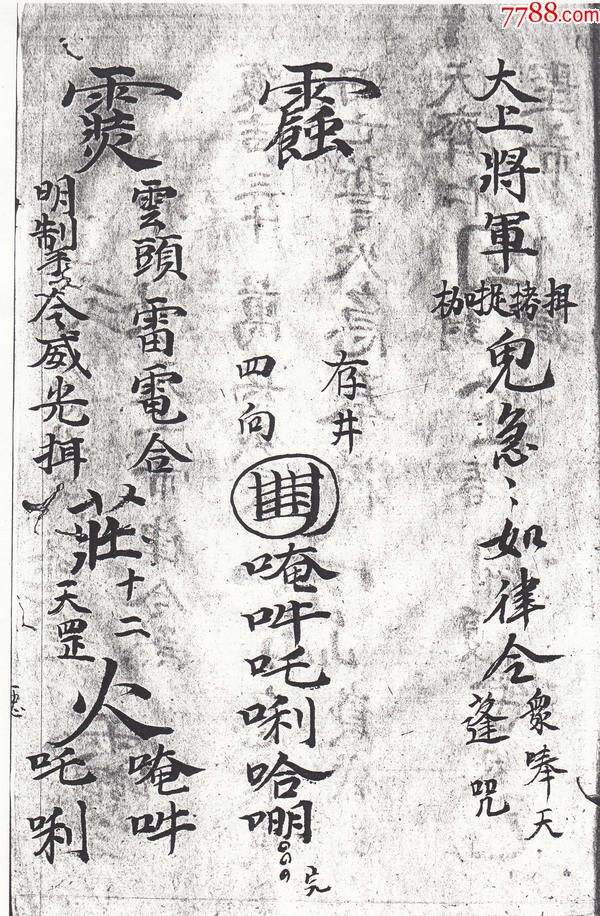 7788.com
大上將軍
枷捉拷拑
鬼急〻如律令
衆奉天
蓬咒
存井
四向
唵吽吒唎哈𠵯
完
雲頭雷電合
明制
令威光拑
莊
十二
天罡
火
唵吽
吒唎